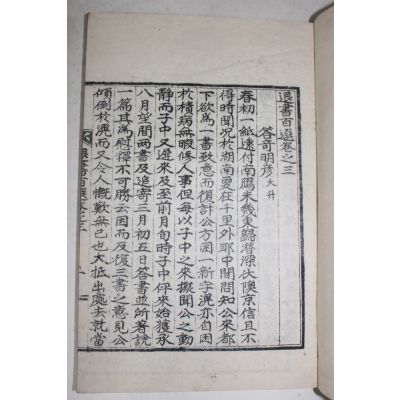 退書百選卷之三
答奇明彦 大升
春初一紙遠付南鴈未幾東歸潛深伏隩京信且不
得時聞況於湖南夐在千里外耶中間聞知公來都
下欲爲一書致意而復計公方困一新字滉亦自困
於積病無暇修人事但每以子中之來掇聞公之動
靜而子中又遲來及至前月旬時子中伻來始獲承
八月望間兩書及追寄三月初五日答書並所著說
一篇其爲慰釋不可勝云因而反復三書之意見公
傾倒於滉而又令人慨歎無已也大抵出處去就當
退書百選卷之三